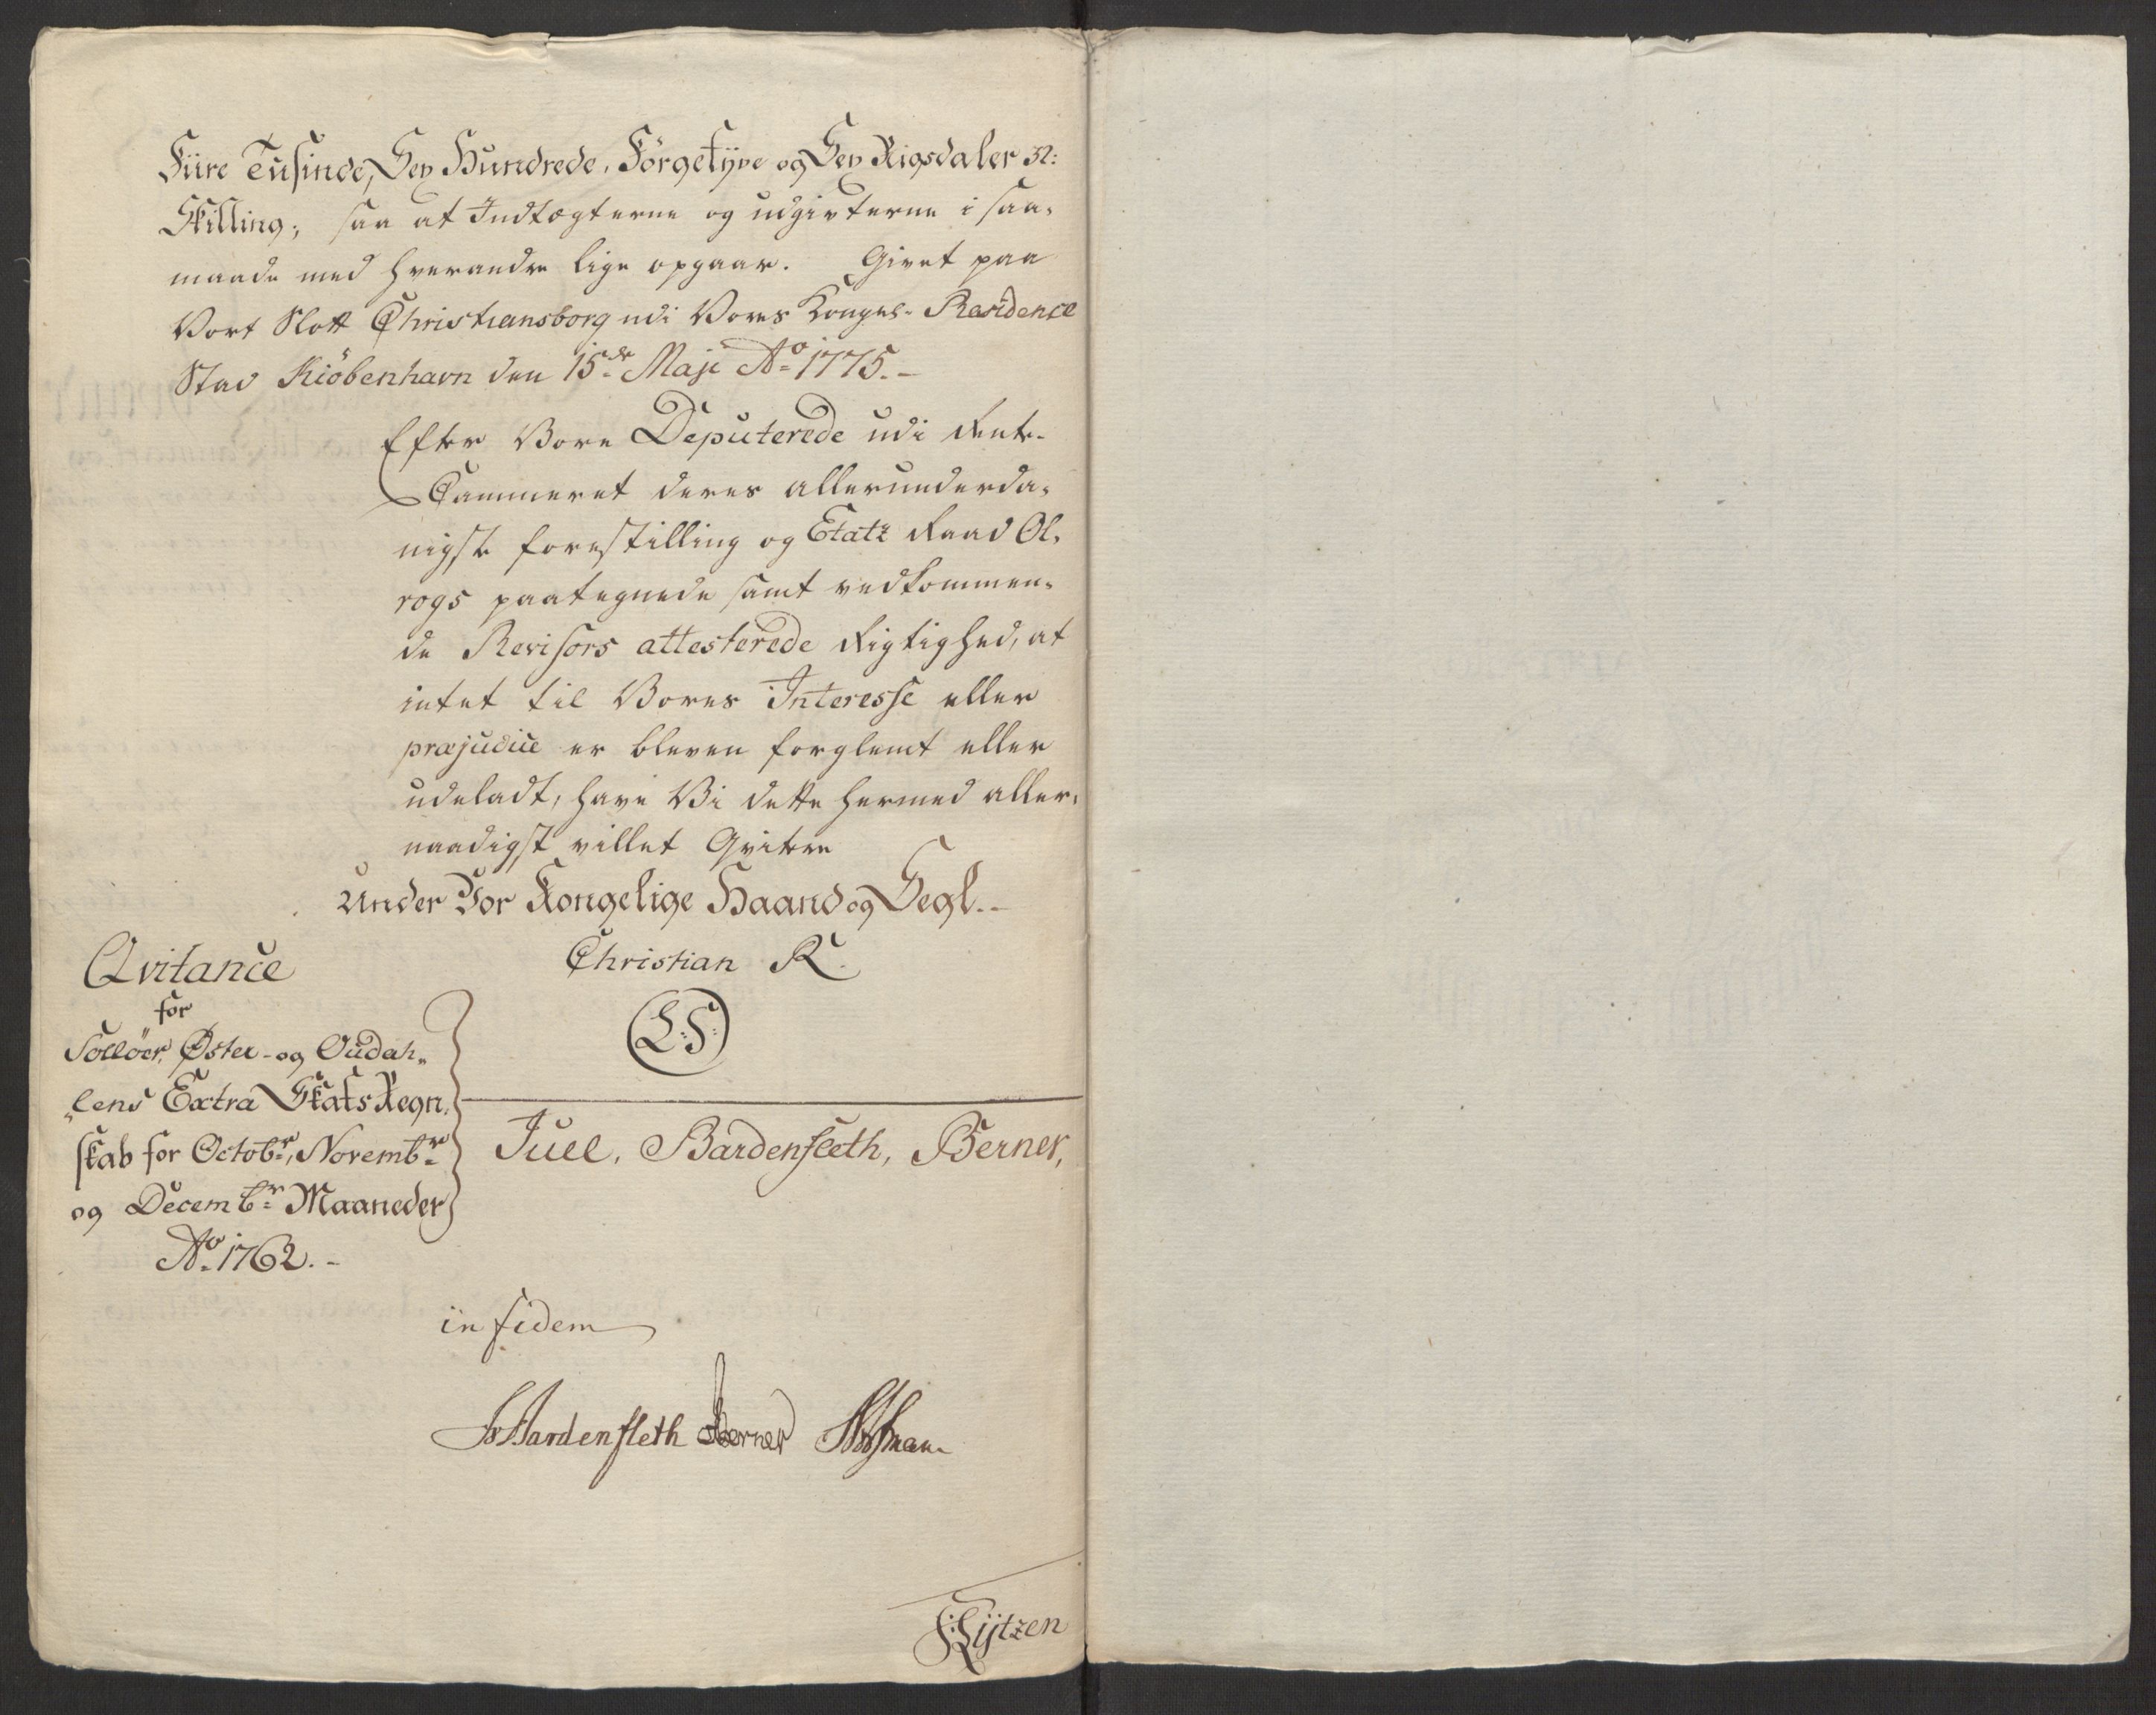 Fiire Tusinde, Sex Hundrede,Förgetÿve og Sex Rigsdaler 32:
Skilling; saa at Indtægterne og udgivterne i saa-
maade med hverandre lige opgaar. Givet paa
Vort Slott Christiansborg udi Vores Kongel- Residence
Stad Kiöbenhavn den 15de Maji Ao 1775.-
Efter Vore Deputerede udi Rente-
Cammeret deres allerunderda-
nigste forestilling og Etatz Raad Ol-
rogs paategnede samt vedkommen-
de Revisors attesterede Rigtighed, at
intet til Vores Interesse eller
præjudice er bleven forglemt eller
udeladt, have Vi dette hermed aller-
naadigst villet Qvitere
Under Vor Kongelige Haand og Segl.-
Christian R.
L:S:
Qvitance
for
Solløer, Øster- og Oudah-
lens Extra Skats Regn-
skab for Octobr, Novembr
og Decembr Maaneder
Ao 1762.-
Juel, Bardenfleth, Berner,
in fidem
Bardenfleth Berner
Lÿtzen